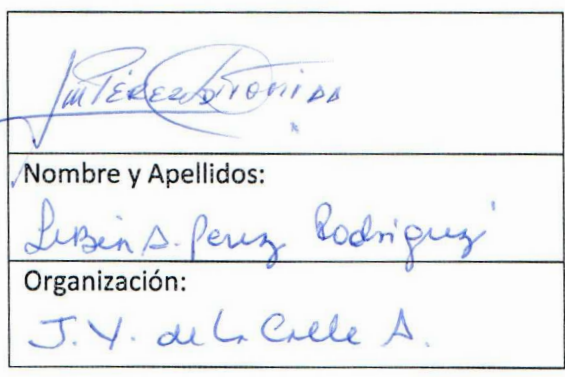 Nombre y Apellidos:
Lubén A. Perez Rodriguez
Organización:
J.V. de La Calle A.